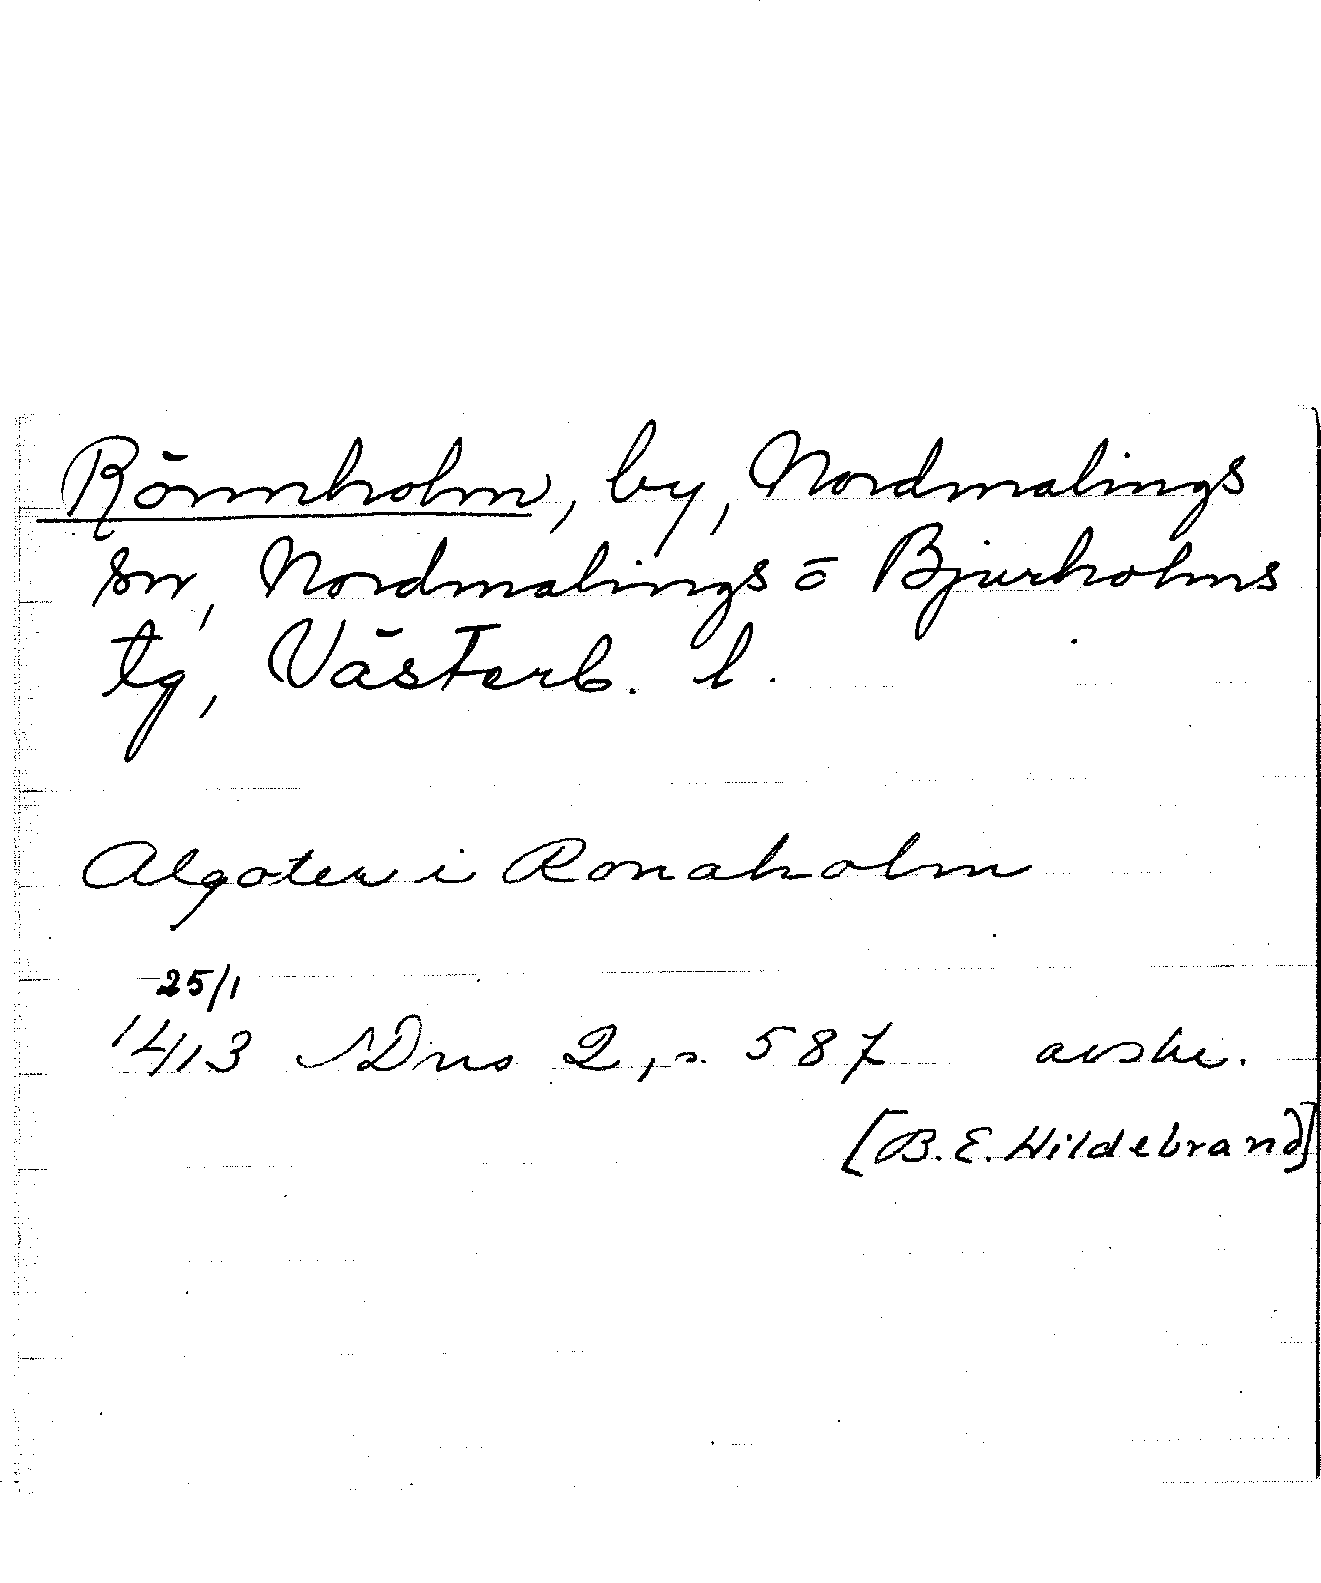 Rönnholm, by, Nordmalings
sn, Nordmalings o Bjurholms
tg, Västerb. l.
Algoter i Ronaholm
25/1
1413 SDns 2, s. 587 avskr.
[B.E. Hildebrand]